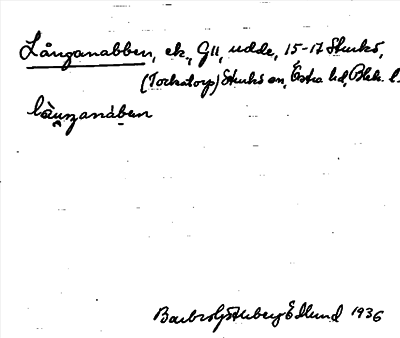 Långanabben, ek., G11, udde, 15-17 Sturkö,
(Torkatorp) Sturkö sn, Östra hd, Blek. l.
Barbro Edlund 1936